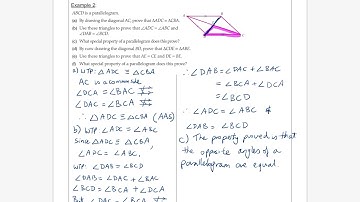 Example 2
ABCD is a parallelogram.
(a) By drawing the diagonal AC, prove that ΔADC ≡ ΔCBA.
(b) Use these triangles to prove that ∠ADC = ∠ABC and
∠DAB = ∠BCD.
(c) What special property of a parallelogram does this prove?
(d) By now drawing the diagonal BD, prove that ΔCDE ≡ ΔABE.
(e) Use these triangles to prove that AE = CE and DE = BE.
(f) What special property of a parallelogram does this prove?
a) WTP: △ADC ≡ △CBA
AC is a common side
∠DCA = ∠BAC
∠DAC = ∠BCA
∴ △ADC ≡ △CBA (AAS)
b) WTP: ∠ADC = ∠ABC
Since △ADC ≡ △CBA
∠ADC = ∠ABC,
WTP: ∠DAB = ∠BCD
∠DAB = ∠DAC + ∠BAC
∠BCD = ∠BCA + ∠DCA
But ∠DAC = ∠BCA
∴ ∠DAB = ∠DAC + ∠BAC
= ∠BCA + ∠DCA
= ∠BCD
∴ ∠ADC = ∠ABC &
∠DAB = ∠BCD
c) The property proved is that
the opposite angles of a
parallelogram are equal.